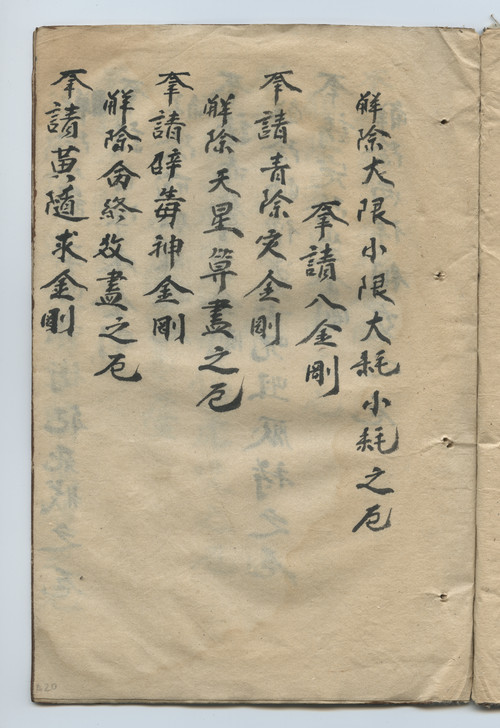 解除大限小限大耗小耗之厄
奉請八金剛
奉請青除灾金剛
解除天星算盡之厄
奉請辟毒神金剛
解除命終放盡之厄
奉請黄隨求金剛
620